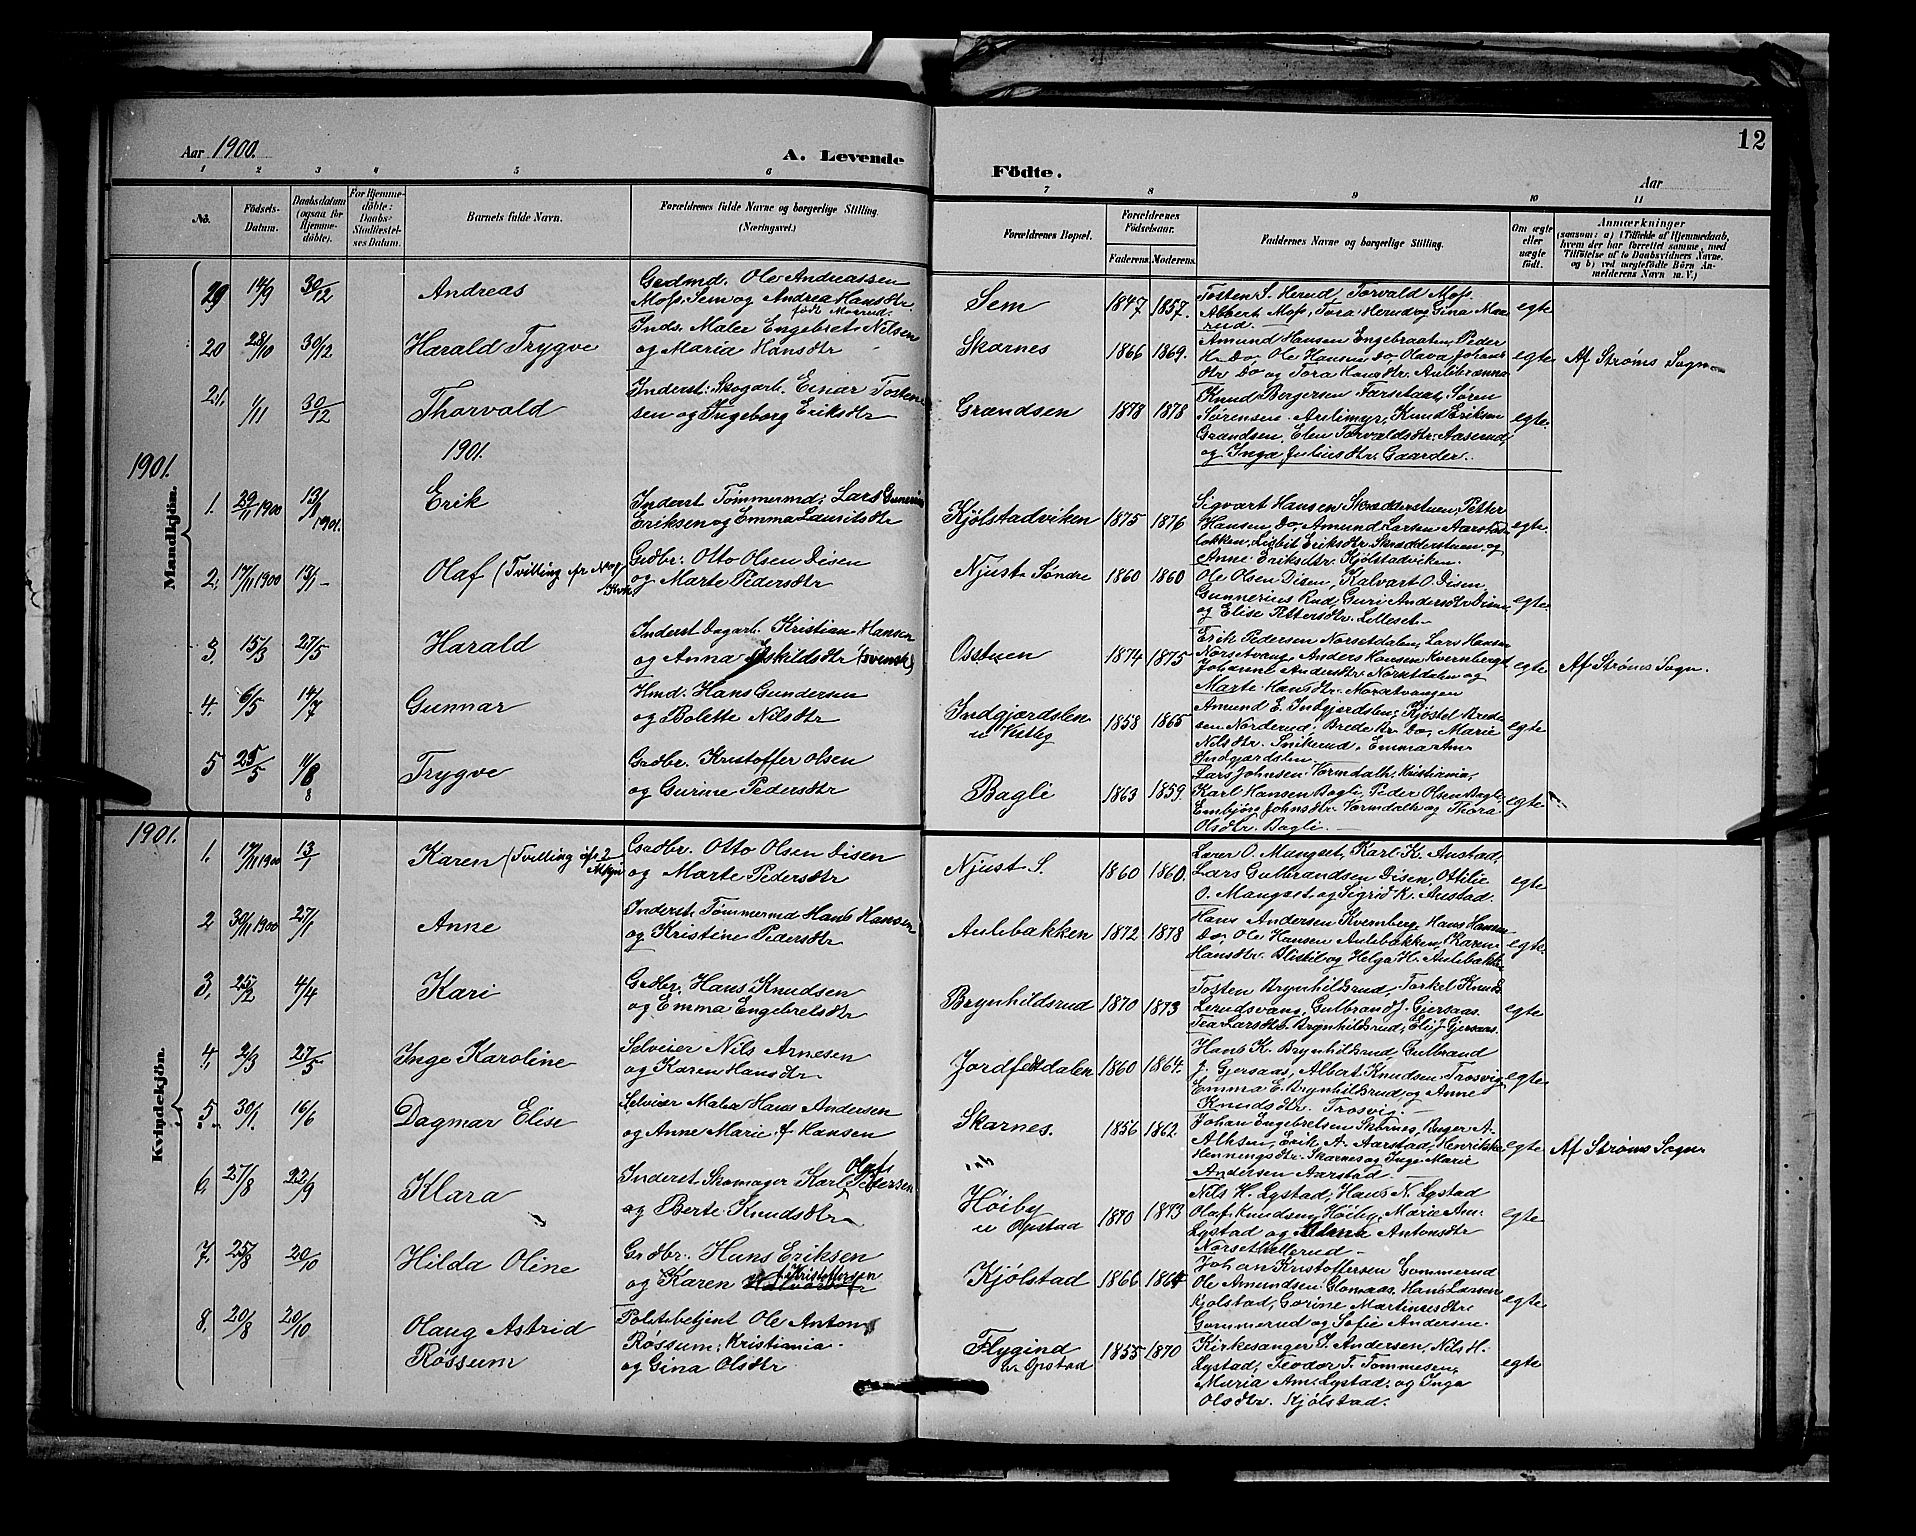 12
Aar 1900.
A. Levende
Födte.
Aar
1 2 3 4 5 6 7 8 9 10 11
No.
Födsels-Datum.
Daabsdatum (ogsaa for Hjemme-döbte).
For Hjemme-döbte: Daabs-Stadfæstel-ses Datum.
Barnets fulde Navn.
Forældrenes fulde Navne og borgerlige Stilling. (Næringsvei.)
Forældrenes Bopæl.
Forældrenes Födselsaar.
Faderens. Moderens.
Faddernes Navne og borgerlige Stilling.
Om ægte eller uægte födt.
Anmærkninger
(saasom: a) i Tilfælde af Hjemmedaab, hvem der har forrettet samme, med Tilföielse af to Daabsvidners Navne, og b) ved uægtefödte Börn An-melderens Navn m. V.)
29 14/9 30/12 Andreas
Grdmd. Ole Andreassen
Moss, Sem og Andrea Hansdtr
født Mosrud.
Sem 1847 1857.
Tosten S. Herud, Torvald Moss
Abbert Moss, Tora Herud og Gina Mos
rud.
egte
20 28/10 30/12 Harald Trygve
Inds. Maler Engebret Nilsen
og Maria Hansdtr
Skarnes 1866 1869.
Amund Hansen Engebraaten, Peder
H. Do, Ole Hansen Do, Olava Johans
dtr Do og Tora Hansdtr. Aulibrænna
egte Af Strøms Sogn
21. 1/11 30/12 Thorvald
Inderst: Skogarb. Einar Tosten
sen og Ingeborg Eriksdtr
Grandsen 1878 1878
Knud Bergersen Farstad, Søren
Sørensen Aulimyr, Knud Eriksen
Grandsen, Elen Torvaldsdtr. Aaserud,
og Inga Juliusdtr. Gaarder.
egte.
1901.
1901.
Mandkjön.
1. 29/11 1900 13/1 1901. Erik
Inderst Tømmermd: Lars
Eriksen og Emma Lauritsdtr
Kjölstadviken 1875 1876
Sigvart Hansen Skrædderstuen, Petter
Hansen Do, Amund Larsen Aarstad
løkken, Lisbit Eriksdtr. Skrædderstuen, og
Anne Eriksdtr. Kjölstadviken.
egte.
2. 17/11 1900 13/1 Olaf (Tvilling
Grdbr: Otto Olsen Disen
og Marte Pedersdtr
Njust Søndre 1860 1860
Ole Olsen Disen, Kalvart O. Disen,
Gunnerius Rud, Guri Andersdtr. Disen
og Elise Pettersdtr. Lilleset.
egte.
3. 15/3 27/5 Harald
Inderst Dagarb. Kristian Hansen
og Anna Eskildsdtr (svensk)
Osstuen 1874 1875
Erik Pedersen Norsetdalen, Lars Hansen
Norsetvang, Anders Hansen Kvernberget
Johanne Andersdtr. Norsetdalen og
Marte Hansdtr. Norsetvangen
egte Af Strøms Sogn.
4. 6/5 14/7 Gunnar
Hmd: Hans Gundersen
og Bolette Nilsdtr
Indgjærdslen
u Vestby
1858 1865
Amund E. Indgjærdslen, Kjøstel Brede
sen Norderud, Brede Kr. Do, Marie
Nilsdtr. Snikerud, Emma Am.
Indgjærdslen.
egte
5 25/5 11/8 Trygve
Grdbr. Kristoffer Olsen
og Gurine Pedersdtr
Bagli 1863 1859.
Lars Johnsen Vormdalh, Kristiania,
Karl Hansen Bagli, Peder Olsen Bagli,
Embjørg Johnsdtr. Vormdalh og Thora
Olsdtr. Bagli.
egte
1901.
Kvindekjön.
1. 17/11 1900 13/1 Karen (Tvilling
Grdbr. Otto Olsen Disen
og Marte Pedersdtr
Njust S. 1860 1860.
Lærer O. Mangset, Karl K. Austad,
Lars Gulbrandsen Disen, Ottilie
O. Mangset, og Sigrid K. Austad.
egte
2 30/11 1900 27/1 Anne
Inderst. Tømmermd Hans Hansen
og Kristine Pedersdtr
Aulibakken 1872 1878
Hans Andersen Kvernberg, Hans Hansen
Do, Ole Hansen Aulibakken, Karen
Hansdtr. og Helga H. Aulibakken
egte.
3. 25/2 4/4 Kari
Grdbr. Hans Knudsen
og Emma Engebretsdtr
Brynhildsrud 1870 1873
Tosten Brynhildsrud, Torkel Knuds
Lerudsvang, Gulbrand J. Gjersaas.
Tea Larsdtr. Brynhildsrud, Eli J. Gjersaas.
egte
4. 2/3 27/5 Inge Karoline
Selveier Nils Arnesen
og Karen Hansdtr.
Jordfestdalen 1860 1864.
Hans K. Brynhildsrud, Gulbrand
J. Gjersaas, Albert Knudsen Trosvig
Emma E. Brynhildsrud, og Anne
Knudsdtr. Trosvig.
egte
5 30/1. 16/6 Dagmar Elise
Selveier Maler Hans Andersen
og Anne Marie f Hansen
Skarnes. 1856 1862.
Johan Engebretsen Skarnes, Birger A.
Erik A. Aarstad, Henrikka
Henningsdtr. Skarnes og Inge Marie
Andersen Aarstad.
egte Af Strøms Sogn
6. 27/8 22/9 Klara
Inderst Skomager Karl Olaf Pedersen
og Berte Knudsdtr
Høiby
u Opstad
1870 1873
Nils H. Lystad, Hans N. Lystad
Olaf Knudsen Høiby, Marie Am.
Lystad og Antonsdtr
Norsethellerud.
egte
7. 25/8 20/10 Hilda Oline
Grdbr. Hans Eriksen
og Karen f. Kristoffersen
Kjölstad 1866 1864
Johan Kristoffersen Gommerud
Ole Amundsen Glomaas, Hans Larsen
Kjölstad, Gorine Martinusdtr
Gommerud og Sofie Andersen.
egte
8. 20/8 20/10 Olaug Astrid
Røssum
Politibetjent Ole Anton
Røssum, Kristiania.
og Gina Olsdtr.
Flygind
u. Opstad
1855 1870
Kirkesanger J. Andersen, Nils H.
Lystad, Teodor T. Tommesen,
Maria Am. Lystad, og Inga
Olsdtr. Kjölstad.
egte